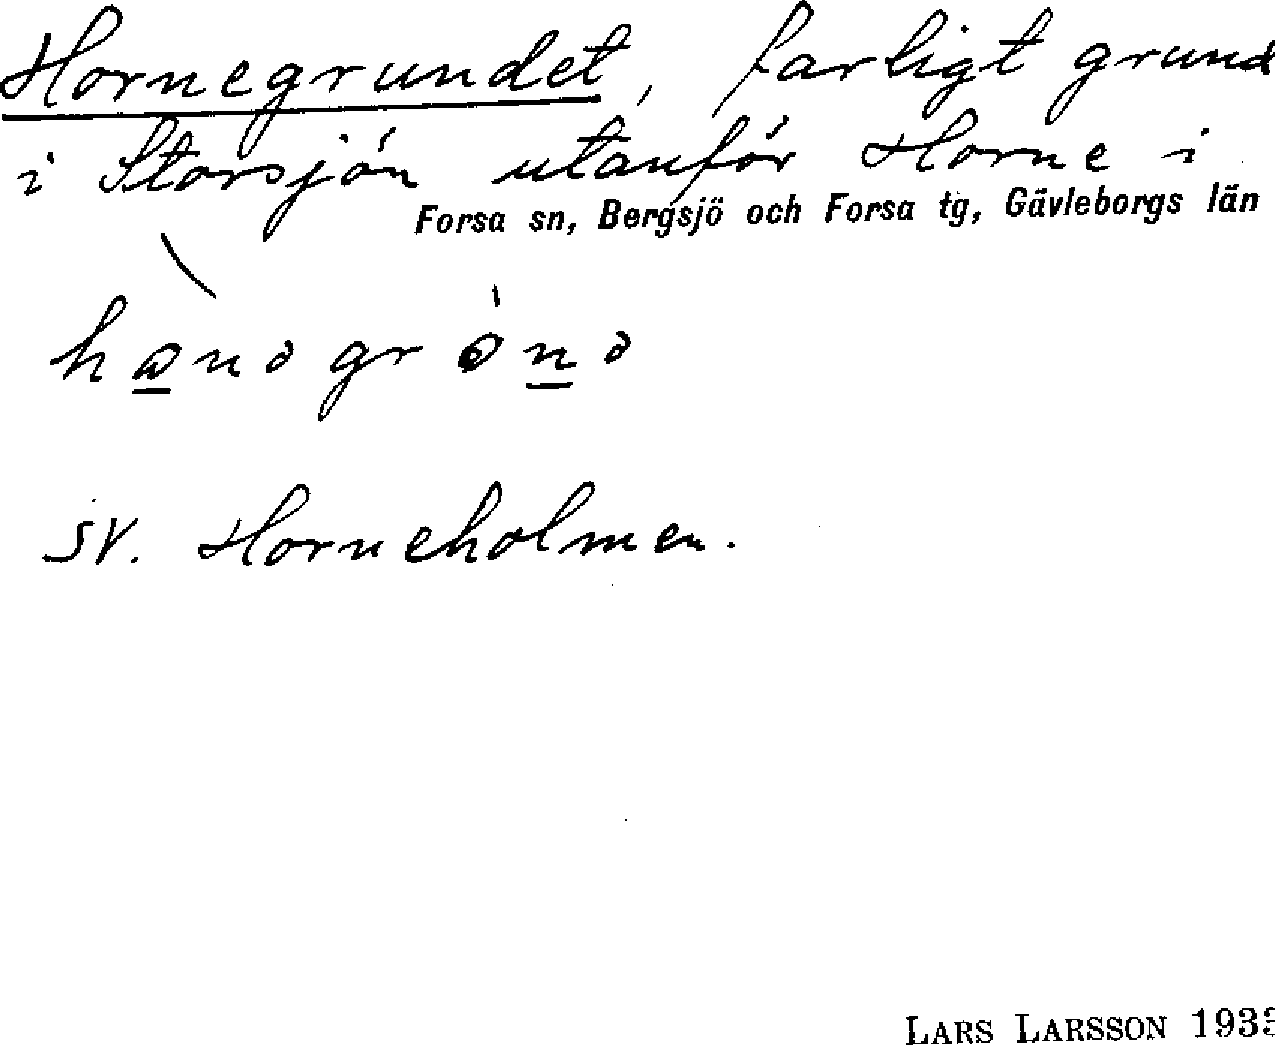 Hornegrundet, farligt grund
i Storsjön utanför Horne i
Forsa sn, Bergsjö och Forsa tg, Gävleborgs län
sv. Horneholmen.
LARS LARSSON